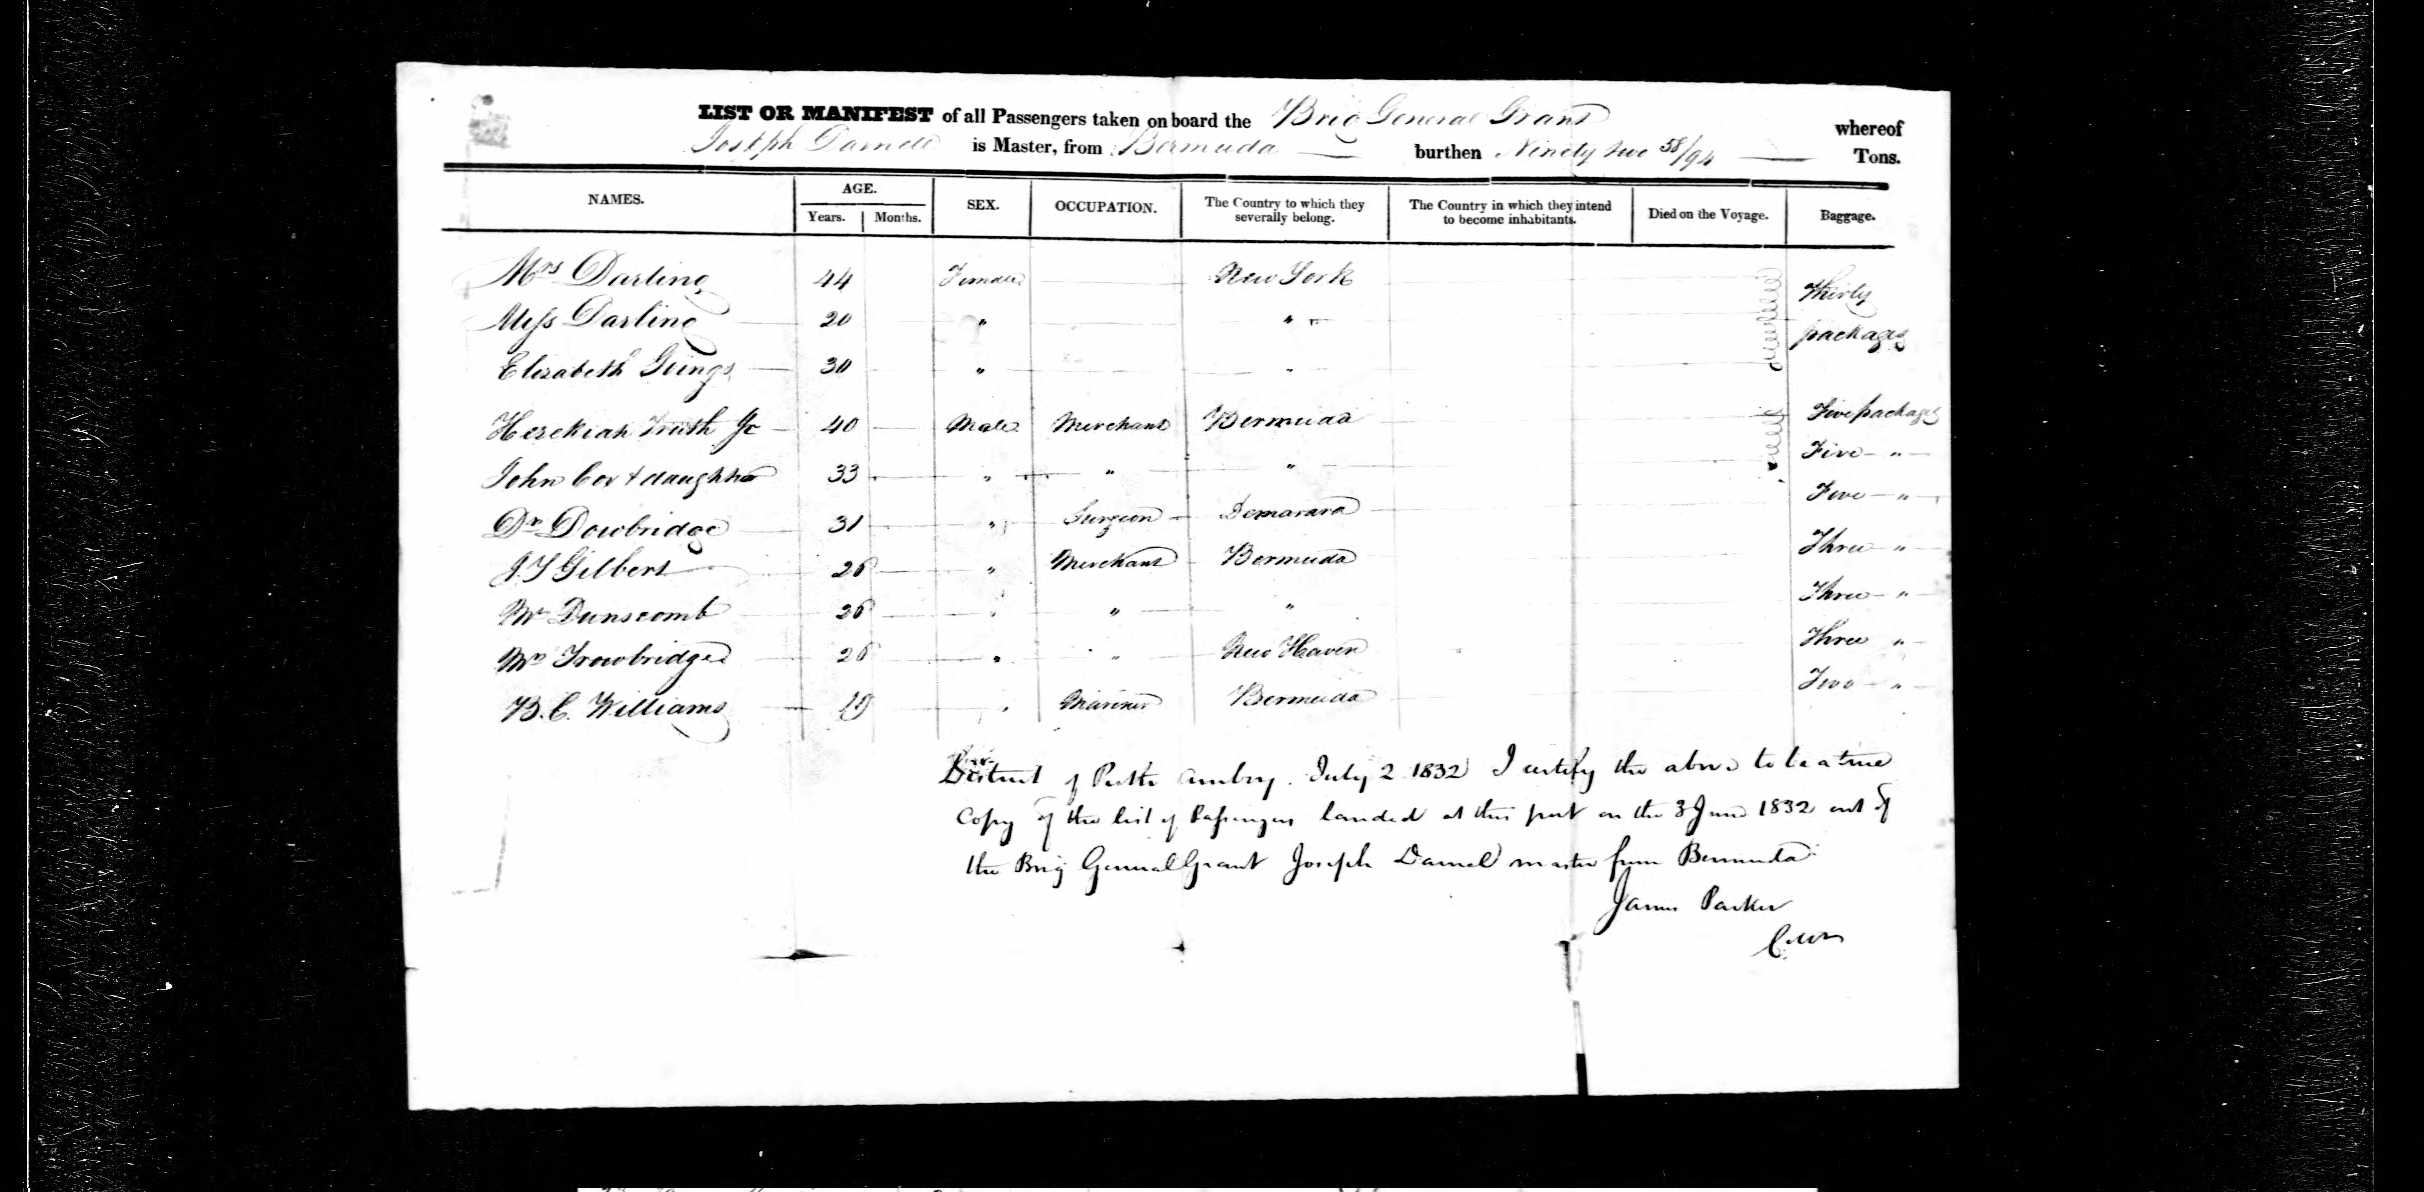 LIST OR MANIFEST of all Passengers taken on board the Brig General Grant whereof
Joseph Darrell is Master, from Bermuda burthen Ninety two 58/94 Tons.
NAMES. AGE. Years. Months. SEX. OCCUPATION. The Country to which they severally belong. The Country in which they intend to become inhabitants. Died on the Voyage. Baggage.
Mrs Darling 44 Female New York Thirty
Miss Darling 20 " " " packages
Elizabeth 30 " "
Hezekiah Frith 40 Male Merchant Bermuda Five packages
John Cox & daughter 33 " " " Five "
Dr Dowbridge 31 " Surgeon Demarara Five "
J. S Gilbert 26 " Merchant Bermuda Three "
Mr Dunscomb 26 " " " Three "
Mr Trowbridge 26 " " New Haven Three "
B. C. Williams 19 " Mariner Bermuda Two "
District of Perth Amboy. July 2 1832 I certify the above to be a true
Copy of the list of Passengers landed at this port on the 3 June 1832 out of
the Brig General Grant Joseph Darrel master from Bermuda
James Parker